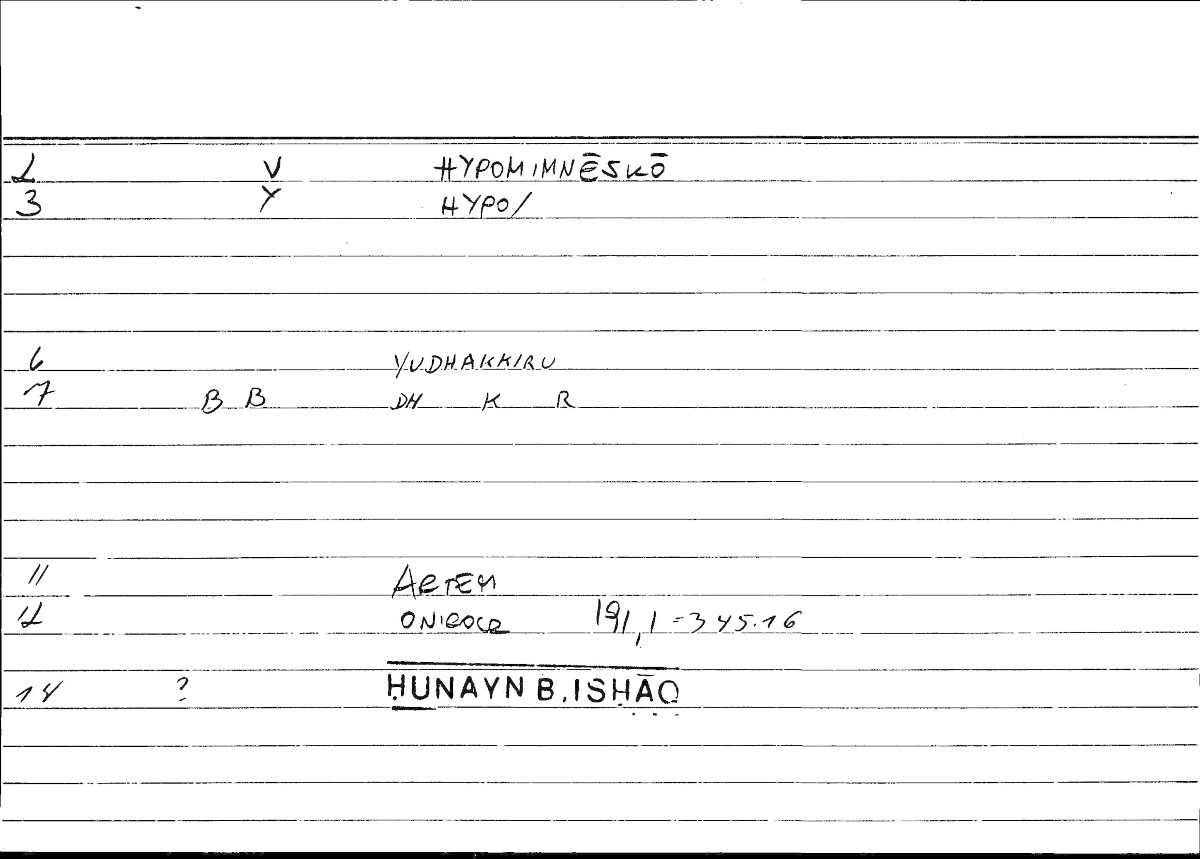 2 V HYPOMIMNĒSKŌ
3 Y HYPO/
6 YUDHAKKIRU
7 B B DH K R
11 ARTEM
12 ONIROCR 191,1=345.16
14 ? ḤUNAYN B. ISḤĀQ